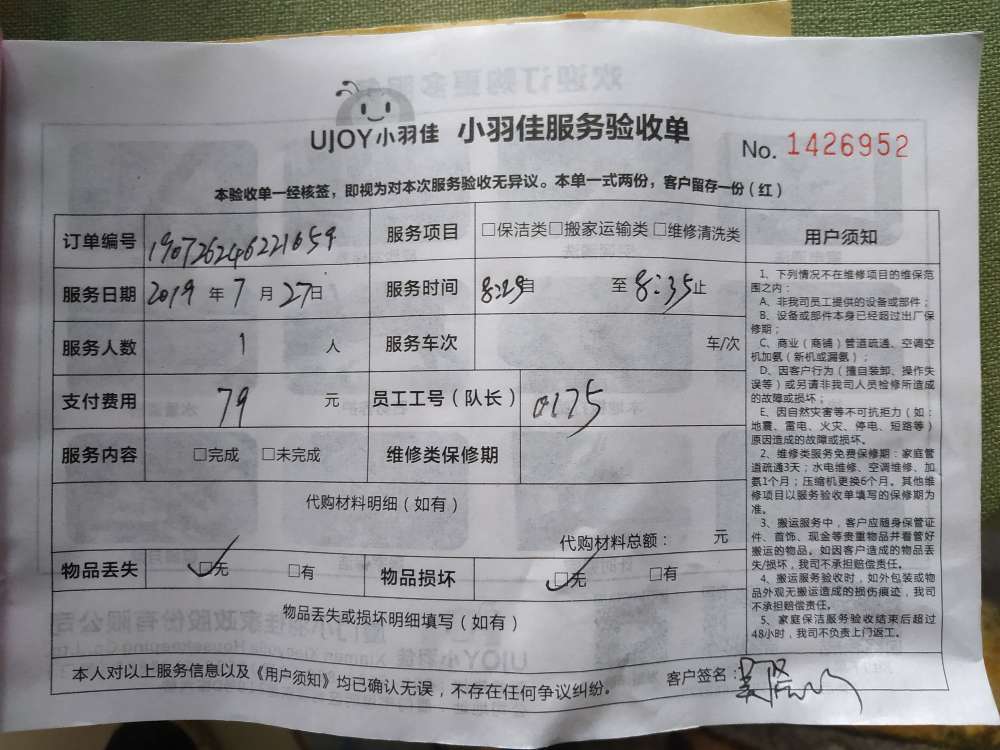 UJOY小羽佳 小羽佳服务验收单
No. 1426952
本验收单一经核签，即视为对本次服务验收无异议。本单一式两份，客户留存一份（红）
订单编号 190726246221659 服务项目 □保洁类□搬家运输类□维修清洗类
服务日期 2019 年 7 月 27日 服务时间 8:29自 至 8:35止
服务人数 1 人 服务车次 车/次
支付费用 79 元 员工工号（队长） 0175
服务内容 □完成 □未完成 维修类保修期
代购材料明细（如有）
代购材料总额： 元
物品丢失 □无 □有 物品损坏 □无 □有
物品丢失或损坏明细填写（如有）
本人对以上服务信息以及《用户须知》均已确认无误，不存在任何争议纠纷。 客户签名：
用户须知
1、下列情况不在维修项目的维保范
围之内：
A、非我司员工提供的设备或部件；
B、设备或部件本身已经超过出厂保
修期；
C、商业（商铺）管道疏通、空调空
机加氨（新机或漏氨）；
D、因客户行为（擅自装卸、操作失
误等）或另请非我司人员检修所造成
的故障或损坏；
E、因自然灾害等不可抗拒力（如：
地震、雷电、火灾、停电、短路等）
原因造成的故障或损坏。
2、维修类服务免费保修期：家庭管
道疏通3天；水电维修、空调维修、加
氨1个月；压缩机更换6个月。其他维
修项目以服务验收单填写的保修期为
准。
3、搬运服务中，客户应随身保管证
件、首饰、现金等贵重物品并看管好
搬运的物品。如因客户造成的物品丢
失/损坏，我司不承担赔偿责任。
4、搬运服务验收时，如外包装或物
品外观无搬运造成的损伤痕迹，我司
不承担赔偿责任。
5、家庭保洁服务验收结束后超过
48小时，我司不负责上门返工。